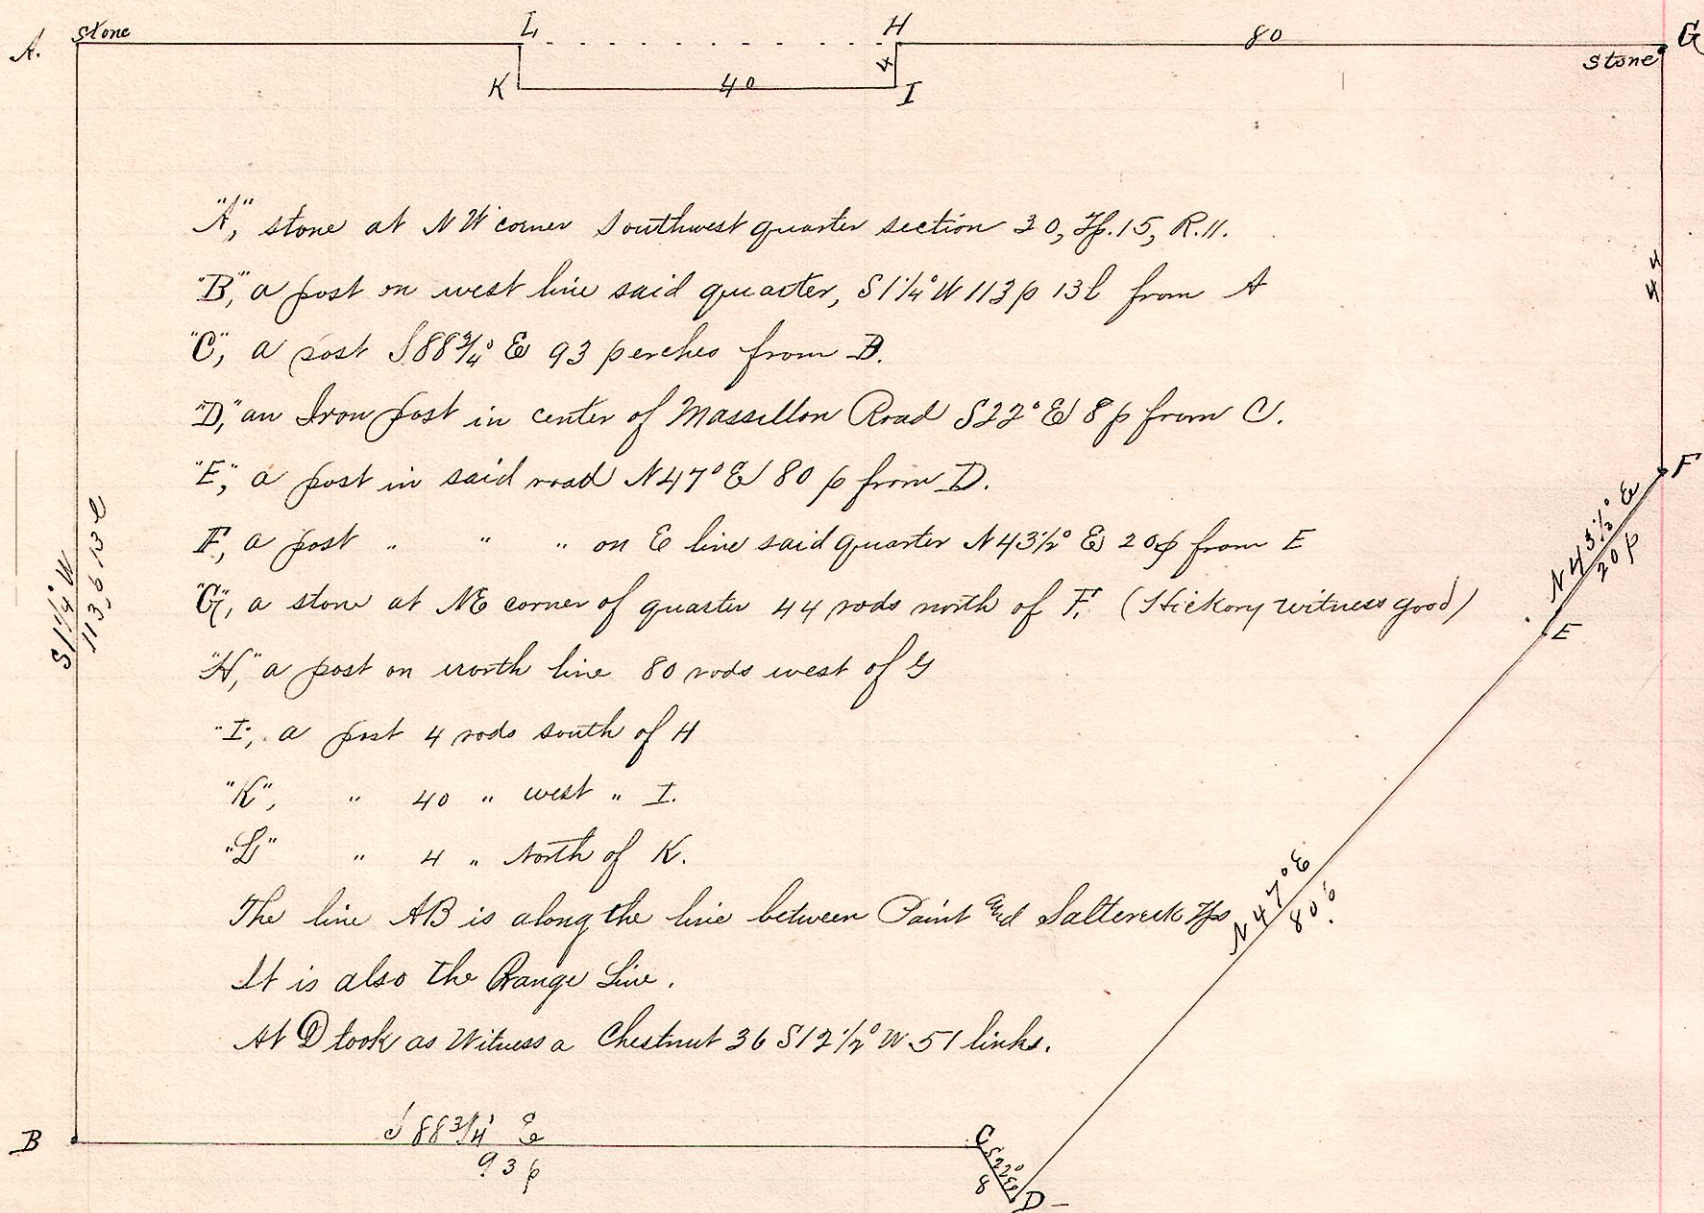 A. Stone L H 80 G
Stone
K 40 4 I
"A", stone at NW corner Southwest quarter section 30, Tp. 15, R. 11.
"B", a post on west line said quarter, S 1 1/4° W 113 p 13 l from A
"C", a post S 88 3/4° E 93 perches from B.
"D," an Iron post in center of Massillon Road S 22° E 8 p from C.
"E", a post in said road N 47° E 80 p from D.
F, a post " " " on E line said quarter N 43 1/2° E 20 p from E
"G", a stone at NE corner of quarter 44 rods north of F. (Hickory witness good)
"H," a post on north line 80 rods west of G
"I", a post 4 rods south of H
"K", " 40 " west " I.
"L" " 4 " North of K.
The line AB is along the line between Paint and Saltcreek Tps
It is also the Range Line.
At D took as Witness a Chestnut 36 S 12 1/2° W 51 links.
S 1 1/4° W
113 p 13 l
44
F
N 43 1/2° E
20 p
E
N 47° E
80 p
B S 88 3/4° E C
93 p
S 22° E
8 D